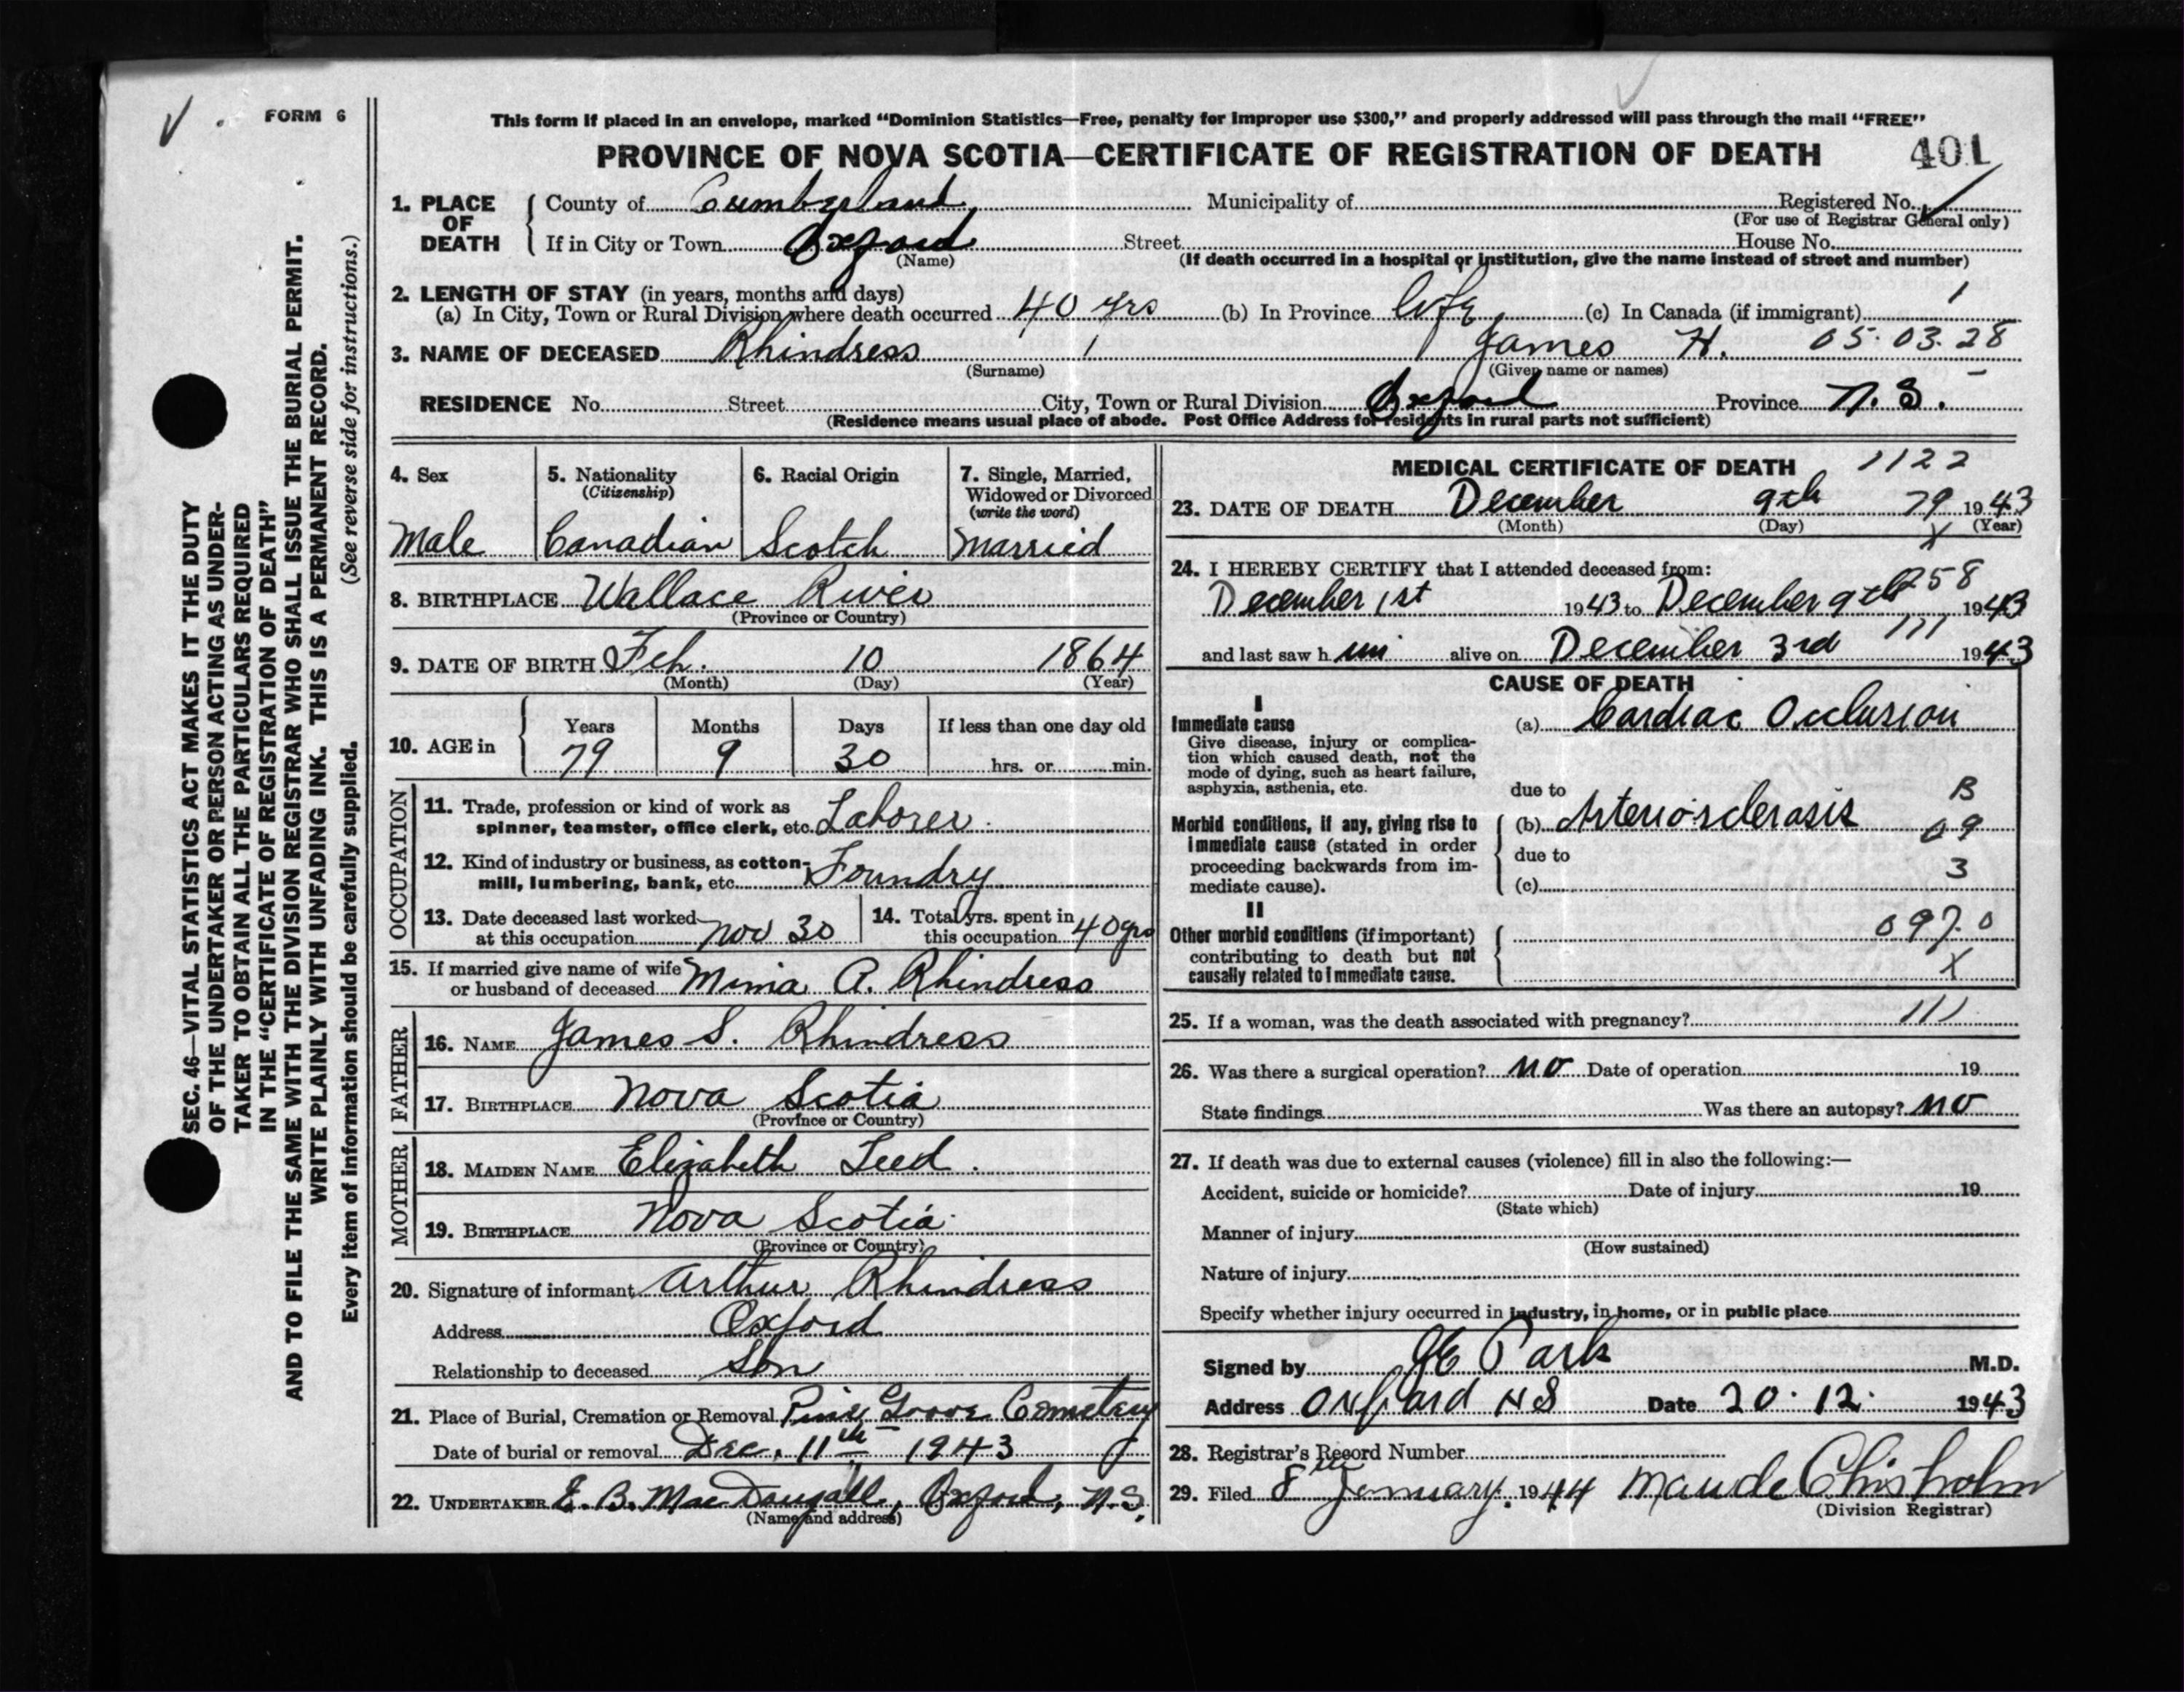 FORM 6
This form if placed in an envelope, marked "Dominion Statistics—Free, penalty for improper use $300," and properly addressed will pass through the mail "FREE"
PROVINCE OF NOVA SCOTIA—CERTIFICATE OF REGISTRATION OF DEATH 401
1. PLACE OF DEATH County of Cumberland Municipality of Registered No.
(For use of Registrar General only)
If in City or Town Oxford Street House No.
(Name) (If death occurred in a hospital or institution, give the name instead of street and number)
2. LENGTH OF STAY (in years, months and days)
(a) In City, Town or Rural Division where death occurred 40 yrs (b) In Province life (c) In Canada (if immigrant) 1
3. NAME OF DECEASED Rhindress 1 James H. 05.03.28
(Surname) (Given name or names)
RESIDENCE No. Street City, Town or Rural Division Oxford Province N.S.
(Residence means usual place of abode. Post Office Address for residents in rural parts not sufficient)
4. Sex
Male
5. Nationality
(Citizenship)
Canadian
6. Racial Origin
Scotch
7. Single, Married,
Widowed or Divorced
(write the word)
Married
8. BIRTHPLACE Wallace River
(Province or Country)
9. DATE OF BIRTH Feb. 10 1864
(Month) (Day) (Year)
10. AGE in Years Months Days If less than one day old
79 9 30 hrs. or min.
OCCUPATION
11. Trade, profession or kind of work as
spinner, teamster, office clerk, etc. Laborer
12. Kind of industry or business, as cotton-
mill, lumbering, bank, etc. Foundry
13. Date deceased last worked
at this occupation Nov 30
14. Total yrs. spent in
this occupation 40 yrs
15. If married give name of wife
or husband of deceased Minia A. Rhindress
FATHER
16. NAME James S. Rhindress
17. BIRTHPLACE Nova Scotia
(Province or Country)
MOTHER
18. MAIDEN NAME Elizabeth Teed.
19. BIRTHPLACE Nova Scotia
(Province or Country)
20. Signature of informant Arthur Rhindress
Address Oxford
Relationship to deceased Son
21. Place of Burial, Cremation or Removal Pine Grove Cemetery
Date of burial or removal Dec. 11th 1943
22. UNDERTAKER E. B. MacDougall, Oxford, N.S.
(Name and address)
MEDICAL CERTIFICATE OF DEATH 1122
23. DATE OF DEATH December 9th 79 1943
(Month) (Day) X (Year)
24. I HEREBY CERTIFY that I attended deceased from: 258
December 1st 1943 to December 9th 1943
and last saw him alive on December 3rd 111 1943
CAUSE OF DEATH
I
Immediate cause (a) Cardiac Occlusion
Give disease, injury or complica-
tion which caused death, not the
mode of dying, such as heart failure,
asphyxia, asthenia, etc.
due to B
Morbid conditions, if any, giving rise to (b) Arterio-sclerosis 09
immediate cause (stated in order
proceeding backwards from im-
mediate cause).
due to 3
(c)
II
Other morbid conditions (if important) 097.0
contributing to death but not
causally related to immediate cause. X
25. If a woman, was the death associated with pregnancy? 111
26. Was there a surgical operation? no Date of operation 19
State findings Was there an autopsy? no
27. If death was due to external causes (violence) fill in also the following:—
Accident, suicide or homicide? Date of injury 19
(State which)
Manner of injury
(How sustained)
Nature of injury
Specify whether injury occurred in industry, in home, or in public place
Signed by Park M.D.
Address Oxford NS Date 20.12. 1943
28. Registrar's Record Number
29. Filed 8th January, 1944 Maude Chisholm
(Division Registrar)
SEC. 46—VITAL STATISTICS ACT MAKES IT THE DUTY
OF THE UNDERTAKER OR PERSON ACTING AS UNDER-
TAKER TO OBTAIN ALL THE PARTICULARS REQUIRED
IN THE "CERTIFICATE OF REGISTRATION OF DEATH"
AND TO FILE THE SAME WITH THE DIVISION REGISTRAR WHO SHALL ISSUE THE BURIAL PERMIT.
WRITE PLAINLY WITH UNFADING INK. THIS IS A PERMANENT RECORD.
Every item of information should be carefully supplied. (See reverse side for instructions.)